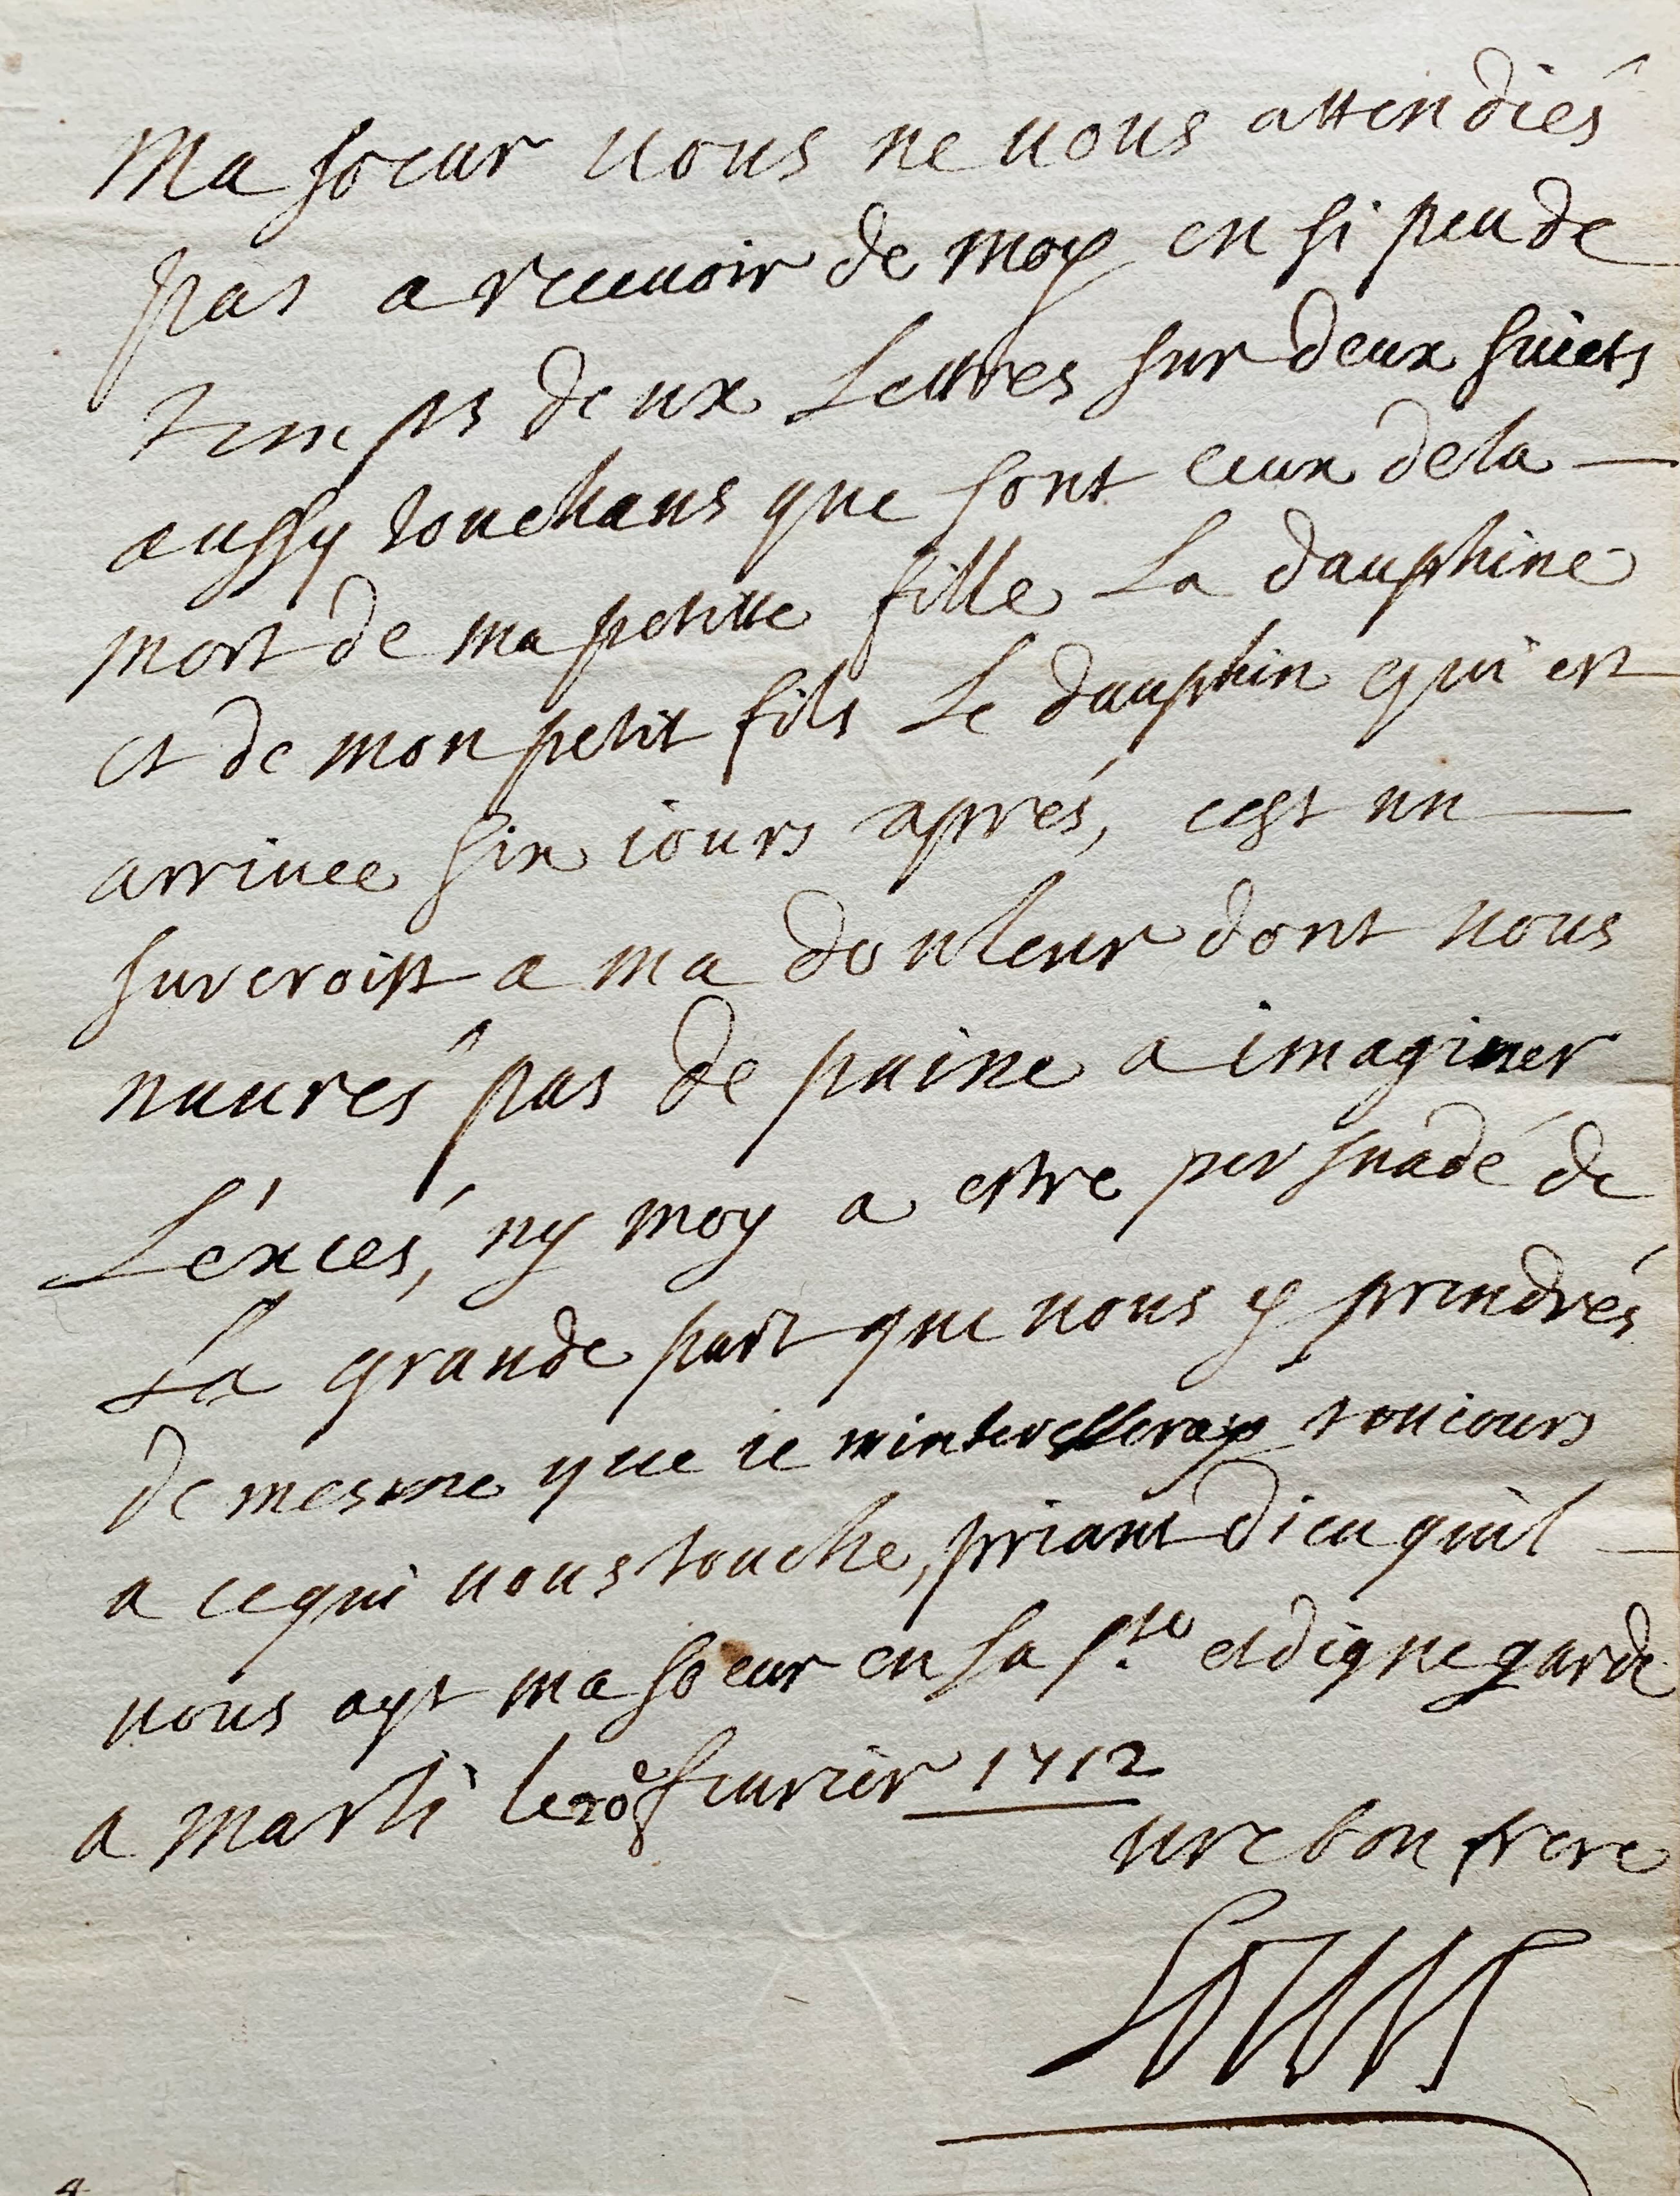 Ma soeur vous ne vous attendiés
pas a recevoir de moy en si peu de
temps deux Lettres sur deux suiets
aussy touchans que sont ceux de la
mort de ma petitte fille La dauphine
et de mon petit fils Le dauphin qui est
arrivee six iours aprés, cest un
surcroist a ma douleur dont vous
naurés pas de paine a imaginer
L'éxcés, ny moy a estre persuadé de
La grande part que vous y prendrés
de mesme que ie minteresseray touiours
a ce qui vous touche, priant dieu quil
vous ayt ma soeur en sa s.te et digne garde
a marli le 20e fevrier 1712
vre bon frere
Louis